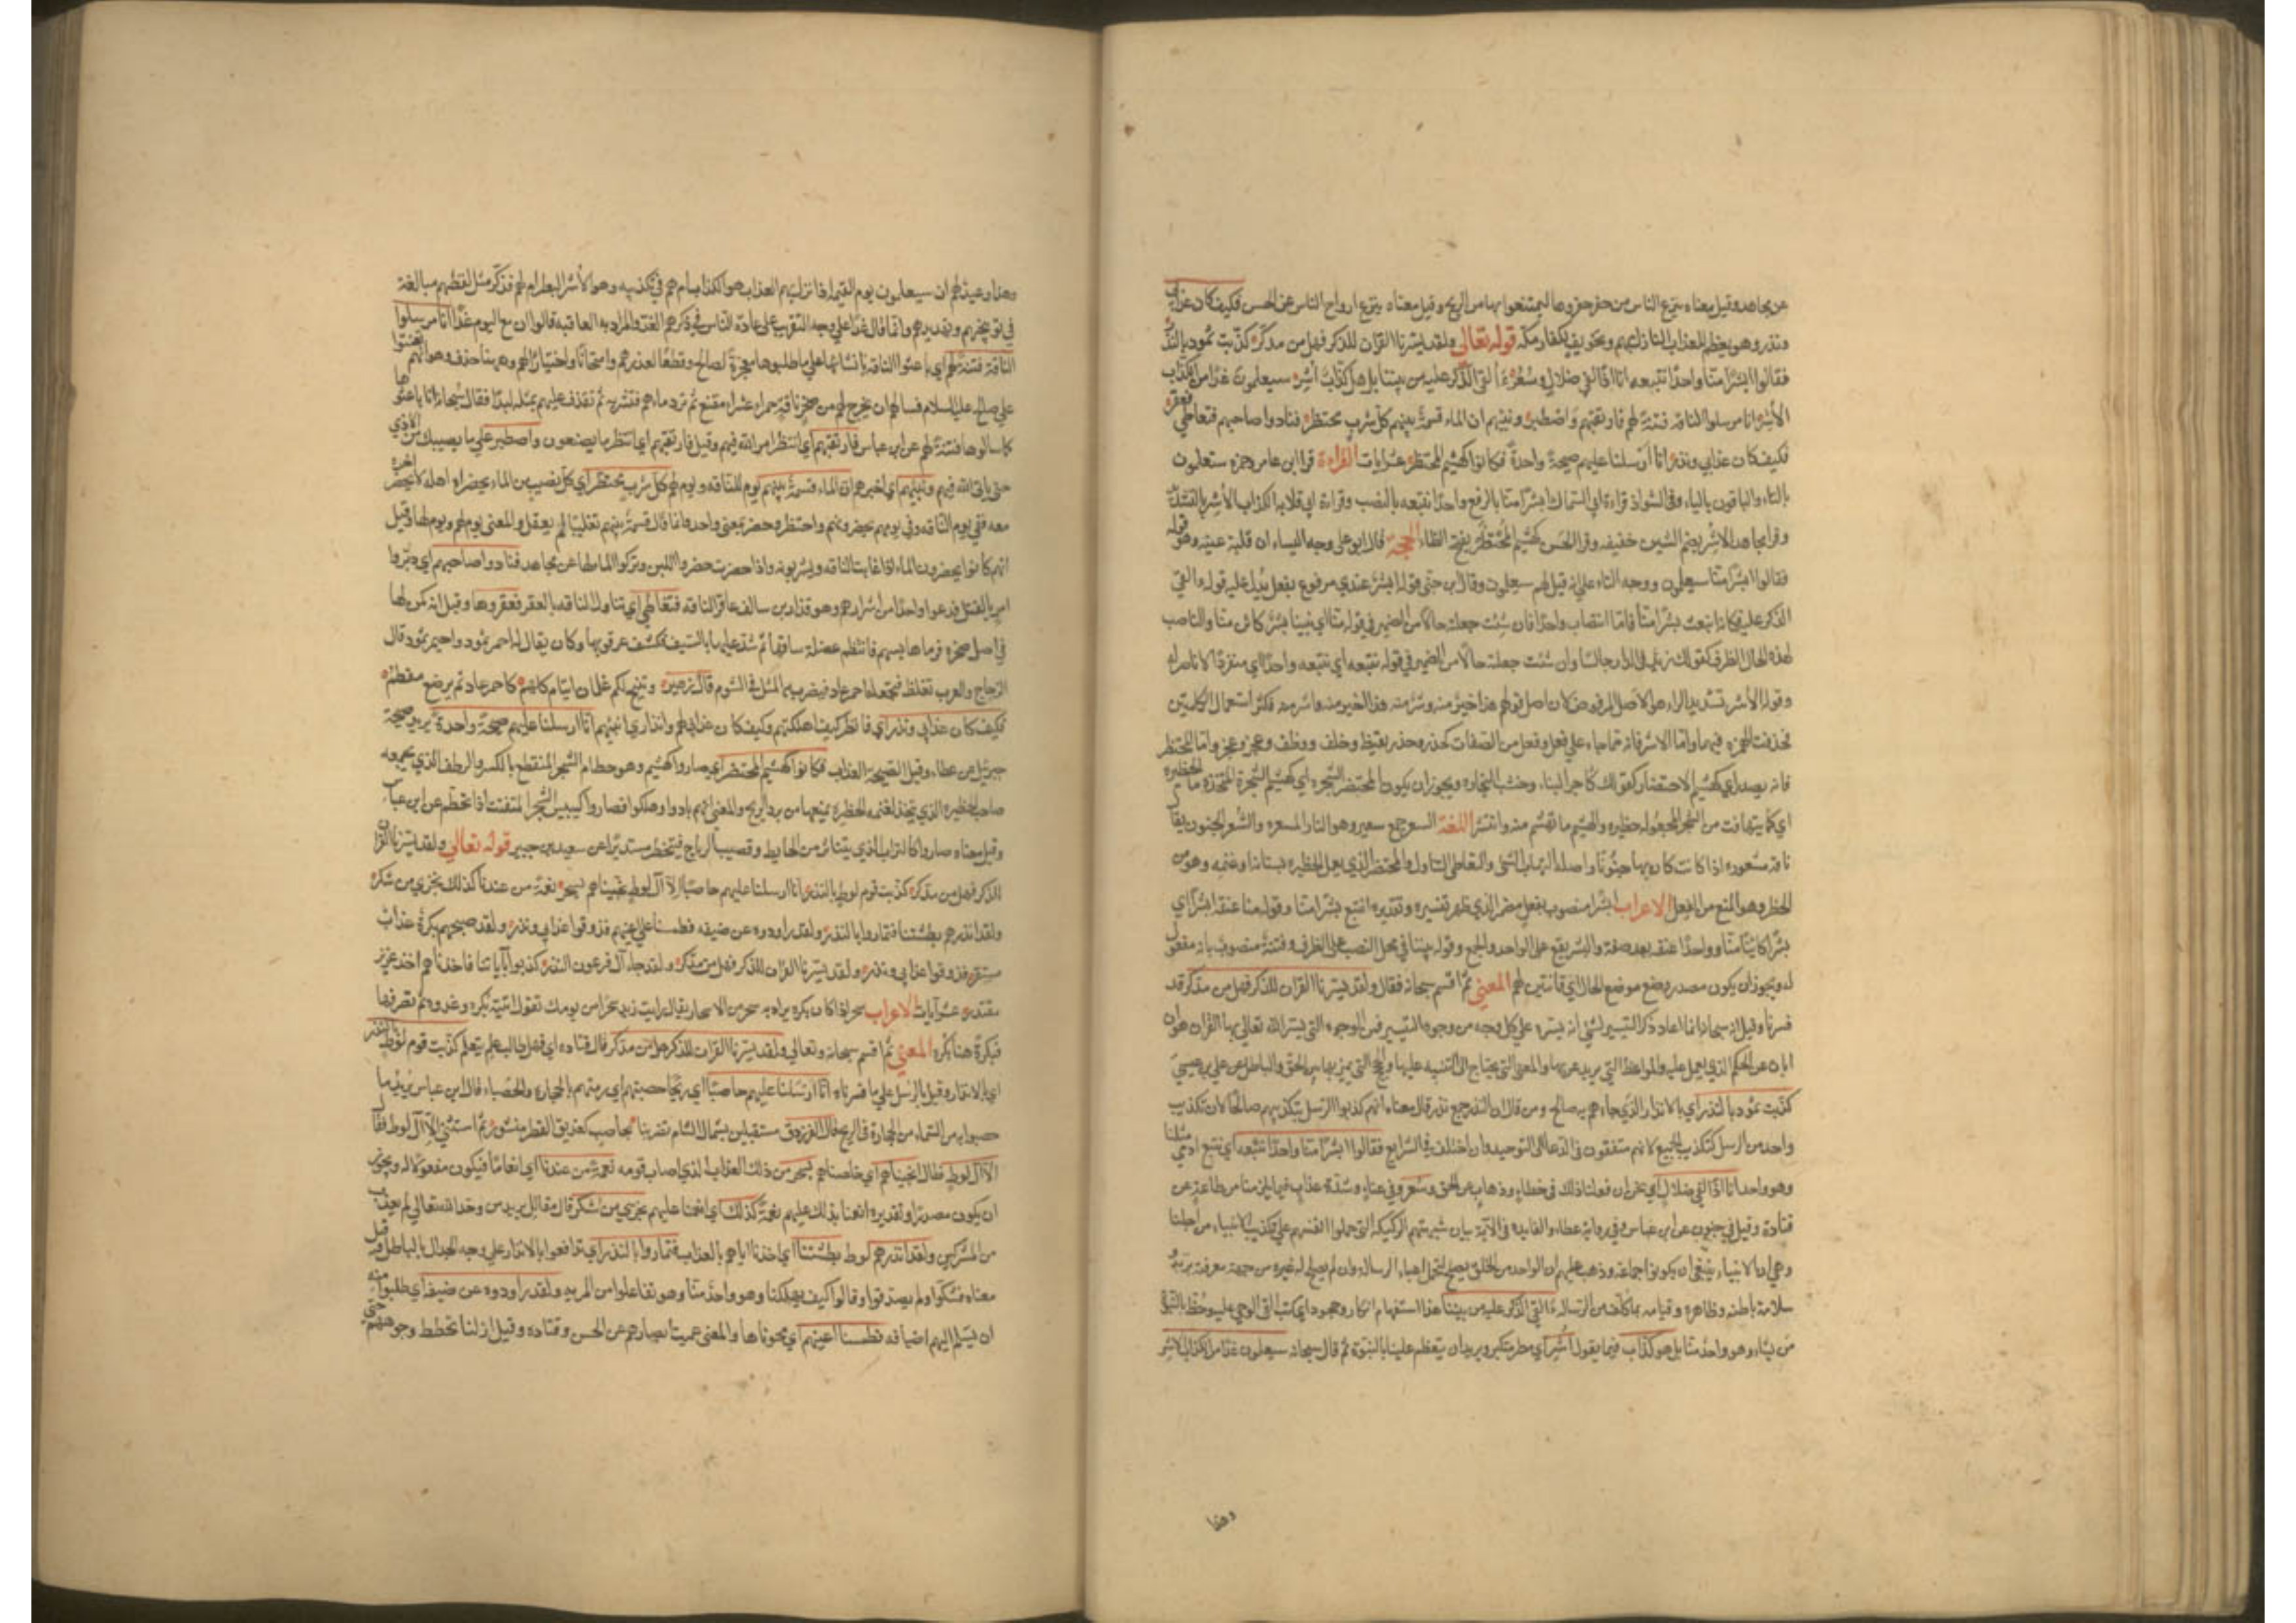 عن مجاهد وقيل معناه ينزع الناس من حفر حفروها ليمتنعوا بها من الريح وقيل معناه ينزع ارواح الناس عن الحسن فكيف كان عذابي
ونذر وهو تعظيم للعذاب النازل بهم وتخويف لكفار مكة قوله تعالى ولقد يسّرنا القران للذكر فهل من مدّكر كذّبت ثمود بالنذر
فقالوا ابشرًا منّا واحدًا نتّبعه انا اذًا لفي ضلال وسُعُر ءَاُلقي الذّكر عليه من بيننا بل هو كذّاب أشِر سيعلمون غدًا من الكذّاب
الأشِر انا مرسلوا الناقة فتنة لهم فارتقبهم واصطبر ونبّئهم ان الماء قسمة بينهم كل شِرب محتضر فنادوا صاحبهم فتعاطى فعقر
فكيف كان عذابي ونذر انا ارسلنا عليهم صيحة واحدة فكانوا كهشيم المحتظر عشر ايات القراءة قرا ابن عامر وحمزه ستعلمون
بالتاء والباقون بالياء وفي الشواذ قراءة ابي السمال ابشر منّا بالرفع واحدًا نتبعه بالنصب وقراءة ابي قلابه الكذاب الأشر بالتشديد
وقرا مجاهد الاشُر بضم الشين خفيفه وقرا الحسن كهشيم المحتظَر بفتح الظاء الحجة قال ابو علي وجه الياء ان قبله غيبه وهو قوله
فقالوا ابشرًا منّا سيعلمون ووجه التاء على انه قيل لهم ستعلمون وقال ابن جني قوله ابشر عندي مرفوع بفعل يدل عليه قوله ءالقي
الذكر عليه فكانه ايبعث بشر منّا فامّا انتصاب واحدًا فان شئت جعلته حالًا من الضمير في قوله منّا اي ينبّا بشر كائن منّا والناصب
لهذه الحال الظرف كقولك زيد في الدار جالسًا وان شئت جعلته حالًا من الضمير في قوله نتبعه اي نتبعه واحدًا اي منفردًا لا ناصر له
وقوله الأشر بتشديد الراء هو الاصل المرفوض لان اصل قولهم هذا خير منه وشر منه هذا اخير منه واشر منه فكثر استعمال الكلمتين
فحذفت الهمزه فيهما وامّا الاشر فانه مما جاء على فعل وفعل من الصفات كحذر وحذر ويقظ وخلف ووظف وعجز وعجز وامّا المحتظر
فانه مصدر اي كهشيم الاحتظار كقولك كآجر البناء وخشب النجاره ويجوز ان يكون المحتظر الشجره اي كهشيم الشجرة المتخذه منها الحظيره
اي كما يتهافت من الشجر المجعول حظيره والهشيم ما تهشم منه وانتشر اللغة السعر جمع سعير وهو النار المسعره والسُّعر الجنون يقال
ناقة مسعوره اذا كانت كان بها جنونًا واصله الهاب الشئ والتعاطي التناول والمحتظر الذي يعمل الحظيره لبستانه او غنمه وهو من
الحظر وهو المنع من الفعل الاعراب ابشرًا منصوب بفعل مضمر الذي ظهر تفسيره وتقديره انتبع بشرًا منّا وقوله منّا صفة ابشرًا اي
بشرًا كائنًا منّا وواحدًا صفة بعد صفة والبشر يقع على الواحد والجمع وقوله بيننا في محل النصب على الظرف وفتنة منصوب بانه مفعول
له ويجوز ان يكون مصدر وضع موضع الحال اي فاتنين لهم المعنى ثم اقسم سبحانه فقال ولقد يسّرنا القران للذكر فهل من مدّكر قد
فسرناه وقيل انه سبحانه انما اعاد ذكر التيسير لينبئ انه يسّره على كل وجه من وجوه التيسير فمن الوجوه التي يسر الله تعالى بها القران هو ان
ابان عن الحكم الذي يعمل عليه والمواعظ التي يرتدع بها والمعاني التي يحتاج الى التنبيه عليها والحجج التي يميز بها بين الحق والباطل عن علي بن عيسى
كذّبت ثمود بالنذر اي بالانذار الذي جاءهم به صالح ومن قال ان النذر جمع نذير قال معناه انهم كذبوا الرسل بتكذيبهم صالحًا لان تكذيب
واحد من الرسل كتكذيب الجميع لانهم متفقون في الدعاء الى التوحيد وان اختلفت الشرايع فقالوا ابشرًا منّا واحدًا نتّبعه اي نتبع ادميًّا مثلنا
وهو واحد انّا اذًا لفي ضلال اي نحن ان فعلنا ذلك في خطاء وذهاب عن الحق وسُعر وفي عناء وشدة عذاب فيما يلزمنا من طاعته عن
قتادة وقيل في جنون عن ابن عباس وفي رواية عطاء والفايده في الاية بيان شبهتهم الركيكة التي حملوا انفسهم على تكذيب الانبياء من اجلها
وهي ان الانبياء ينبغي ان يكونوا جماعة وذهب عليهم ان الواحد من الخلق يصلح لتحمل اعباء الرسالة وان لم يصلح له غيره من جهة معرفته بربه و
سلامة باطنه وظاهره وقيامه بما كلّف من الرسالة ءَاُلقي الذّكر عليه من بيننا هذا استفهام انكار وجحود اي كيف القي الوحي عليه وخُصّ بالنبوة
من بيننا وهو واحد منّا بل هو كذّاب فيما يقول أشِر اي بطر متكبر ويريد ان يتعظم علينا بالنبوّة ثم قال سبحانه سيعلمون غدًا من الكذّاب الاشر
وهذا
وهذا وعيد لهم ان سيعلمون يوم القيمة اذا نزل بهم العذاب هو الكذاب ام هم في تكذيبه وهو الأشر البطر ام هم فذكر مثل لفظهم مبالغة
في توبيخهم وتهديدهم وانما قال غدًا على وجه التقريب على عادة الناس في ذكرهم الغد والمراد به العاقبه قالوا ان مع اليوم غدًا انا مرسلوا
الناقة فتنة لهم اي باعثوا الناقة بانشائها على ما طلبوها معجزة لصالح وقطعًا لعذرهم وامتحانًا واختبارًا لهم وههنا حذف وهو انهم تعنتوا
على صالح عليه السلام فسالوه ان يخرج لهم من صخرة ناقة حمراء عشراء تضع ثم ترد ماءهم فتشربه ثم تقذف عليهم بمثله لبنًا فقال سبحانه انا باعثوها
كما سالوها فتنة لهم عن ابن عباس فارتقبهم اي انتظر امر الله فيهم وقيل فارتقبهم اي انتظر ما يصنعون واصطبر على ما يصيبك من الاذي
حتى ياتي الله فيهم ونبّئهم اي اخبرهم ان الماء قسمة بينهم يوم للناقه ويوم لهم كل شِرب محتضر اي كل نصيب من الماء يحضره اهله لا يحضر اخر
معه ففي يوم الناقه وفي يومهم يحضرونه هم واحتضر وحضر بمعنى واحد وانما قال قسمة بينهم تغليبًا لمن يعقل والمعنى يوم لهم ويوم لها وقيل
انهم كانوا يحضرون الماء اذا غابت الناقه ويشربونه واذا حضرت حضروا اللبن وتركوا الماء لها عن مجاهد فنادوا صاحبهم اي دبّروا
امر بالقتل فدعوا واحدًا من اشرارهم وهو قدار بن سالف عاقر الناقه فتعاطى اي تناول الناقه بالعقر فعقروها وقيل انه كمن لها
في اصل صخرة فرماها بسهم فانتظم عضلة ساقها ثم شدّ عليها بالسيف فكشف عرقوبها وكان يقال له احمر ثمود واحيمر ثمود قال
الزجاج والعرب تغلط فتجعله احمر عاد فيضرب به المثل في الشوم قال زهير وتنتج لكم غلمان اشام كلهم كاحمر عاد ثم ترضع فتفطم
فكيف كان عذابي ونذر اي فانظر كيف اهلكتهم وكيف كان عذابي لهم وانذاري اياهم انا ارسلنا عليهم صيحة واحدة يريد صيحة
جبريل عن عطاء وقيل الصيحة العذاب فكانوا كهشيم المحتظر اي صاروا كهشيم وهو حطام الشجر المنقطع بالكسر والرض الذي يجمعه
صاحب الحظيره الذي يتخذ لغنمه حظيره يمنعها من برد الريح والمعنى انهم بادوا وهلكوا فصاروا كيبيس الشجر المتفتت اذا تحطّم عن ابن عباس
وقيل معناه صاروا كالتراب الذي يتناثر من الحايط وتصيبه الرياح فيتحظر مستديرًا عن سعيد بن جبير قوله تعالى ولقد يسّرنا القران
للذكر فهل من مدّكر كذّبت قوم لوط بالنذر انا ارسلنا عليهم حاصبًا الّا آل لوط نجّيناهم بسحر نعمة من عندنا كذلك نجزي من شكر
ولقد انذرهم بطشتنا فتماروا بالنذر ولقد راودوه عن ضيفه فطمسنا اعينهم فذوقوا عذابي ونذر ولقد صبّحهم بكرة عذاب
مستقر فذوقوا عذابي ونذر ولقد يسّرنا القران للذكر فهل من مدّكر ولقد جاء آل فرعون النذر كذبوا بآياتنا كلها فاخذناهم اخذ عزيز
مقتدر عشر آيات الاعراب سحر اذا كان نكره يراد به سحر من الاسحار يقال رايت زيدًا سحرًا من يومك تقول اتيته بكره وغدوه لم تصرفها
فبكرةً هنا نكره المعنى ثم اقسم سبحانه وتعالى ولقد يسّرنا القران للذكر هل من مدّكر قال قتاده اي فهل طالب علم يتعلم كذّبت قوم لوط بالنذر
اي بالانذار وقيل بالرسل على ما فسرناه انا ارسلنا عليهم حاصبًا اي ريحًا حصبتهم اي رمتهم بالحجاره والحصباء قال ابن عباس يريد ما
حصبوا به من السماء من الحجارة في الريح قال الفرزدق مستقبلين شمال الشام تضربنا بحاصب كنديف القطن منثور ثم استثنى الّا آل لوط فقال
الّا آل لوط فقال انجيناهم اي خلصناهم بسحر من ذلك العذاب الذي اصاب قومه نعمة من عندنا اي انعامًا فيكون مفعولًا له ويجوز
ان يكون مصدرًا وتقديره انعمنا بذلك عليهم نعمة كذلك اي انعمنا عليهم نجزي من شكر قال مقاتل يريد من وحّد الله تعالى لم يعذب
من المشركين ولقد انذرهم لوط بطشتنا اي اخذنا اياهم بالعذاب فتماروا بالنذر اي تدافعوا بالانذار على وجه الجدال بالباطل وقيل
معناه فشكّوا ولم يصدقوا وقالوا كيف يهلكنا وهو واحد منّا وهو تفاعلوا من المريه ولقد راودوه عن ضيفه اي طلبوا منه
ان يسلم اليهم اضيافه فطمسنا اعينهم اي محوناها والمعنى عميت ابصارهم عن الحسن وقتاده وقيل ازلنا تخطيط وجوههم حتى